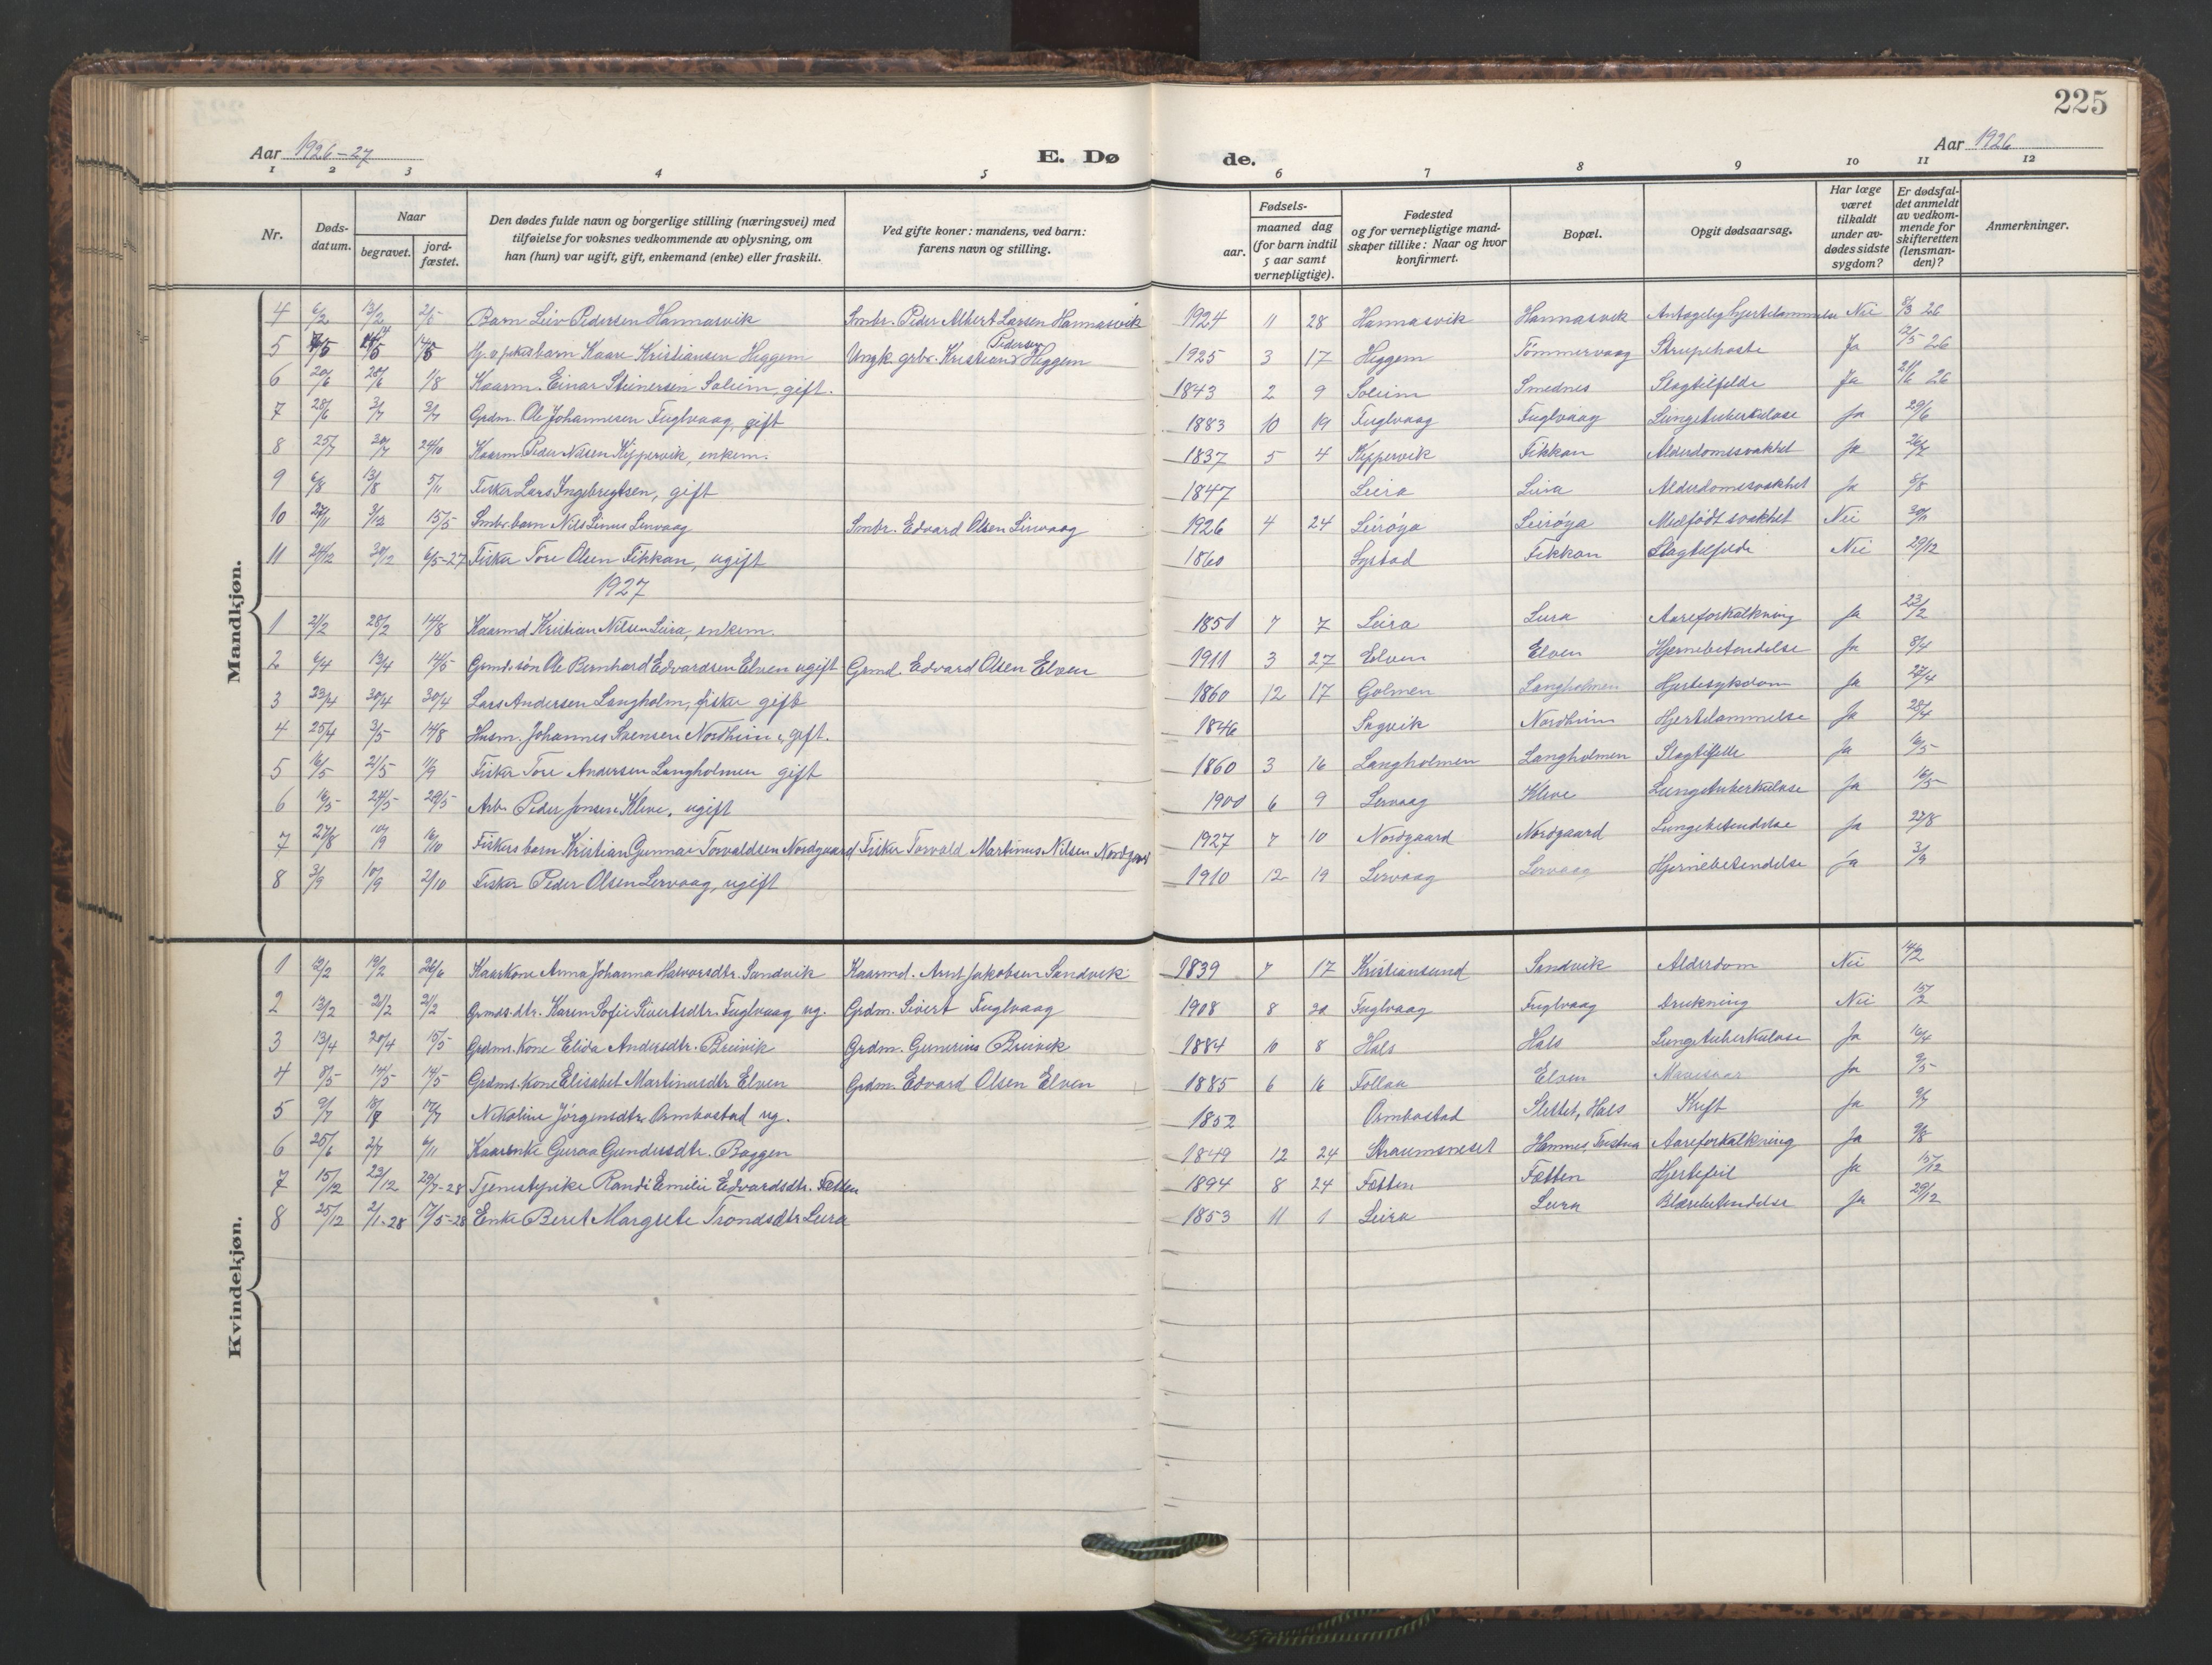 225
Aar 1926-27
E. Dø
de.
Aar 1926
1 2 3 4 5 6 7 8 9 10 11 12
Nr.
Døds-
datum.
Naar
begravet.
jord-
fæstet.
Den dødes fulde navn og borgerlige stilling (næringsvei) med
tilføielse for voksnes vedkommende av oplysning, om
han (hun) var ugift, gift, enkemand (enke) eller fraskilt.
Ved gifte koner: mandens, ved barn:
farens navn og stilling.
Fødsels-
aar.
maaned dag
(for barn indtil
5 aar samt
vernepligtige).
Fødested
og for vernepligtige mand-
skaper tillike: Naar og hvor
konfirmert.
Bopæl.
Opgit dødsaarsag.
Har læge
været
tilkaldt
under av-
dødes sidste
sygdom?
Er dødsfal-
det anmeldt
av vedkom-
mende for
skifteretten
(lensman-
den)?
Anmerkninger.
Mandkjøn.
4 6/2 13/2 2/5 Barn Leiv Pedersen Hannasvik Smbr. Peder Albert Larsen Hannasvik 1924 11 28 Hannasvik Hannasvik Antagelig hjertelammelse Nei 8/3 26
5 14/5 Kaare Kristiansen Heggem Ungk. grbr. Kristian Pedersen Heggem 1925 3 17 Heggem Tømmervaag Strupehoste Ja 2/5 26
6 20/6 28/6 1/8 Kaarm. Einar Steinersen Soleim, gift. 1843 2 9 Soleim Smednes Slagtilfelde Ja 21/6 26
7 28/6 3/7 3/7 Grdm. Ole Johannesen Fuglvaag, gift 1883 10 19 Fuglvaag Fuglvaag Lungetuberkulose Ja 29/6
8 25/7 30/7 24/10 Kaarm. Peder Nilsen Kippervik, enkem. 1837 5 4 Kippervik Fikkan Alderdomssvakhet Ja 26/7
9 6/8 13/8 5/11 Fisker Lars Ingebregtsen, gift 1847 Leira Leira Alderdomssvakhet Ja 8/8
10 27/11 3/12 15/5 Smbr. barn Nils Linus Lervaag Smbr. Edvard Olsen Lirvaag 1926 4 24 Leirøya Leirøya Medfødt svakhet Nei 30/11
11 24/12 30/12 6/5-27 Fisker Tore Olsen Fikkan, ugift 1860 Systad Fikkan Slagtilfelde Nei 29/12
1927
1 21/2 28/2 14/8 Kaarmd. Kristian Nilsen Leira, enkem. 1851 7 7 Leira Leira Aareforkalkning Ja 23/2
2 6/4 13/4 14/5 Grmd. søn Ole Bernhard Edvardsen Elven ugift Grmd. Edvard Olsen Elven 1911 3 27 Elven Elven Hjernebetendelse Ja 8/4
3 23/4 30/4 30/4 Lars Andersen Langholm, fisker gift 1860 12 17 Golmen Langholmen Hjertesykdom Ja 27/4
4 25/4 3/5 14/8 Husm. Johannes Svensen Nordheim, gift. 1846 Sagvik Nordheim Hjertelammelse Ja 28/4
5 16/5 21/5 11/9 Fisker Tore Andersen Langholmen gift 1860 3 16 Langholmen Langholmen Slagtilfelle Ja 16/5
6 16/5 24/5 29/5 Arb. Peder Jensen Kleve, ugift 1900 6 9 Lervaag Kleve Lungetuberkulose Ja 16/5
7 27/8 10/9 16/10 Fiskers barn Kristian Gunnar Torvaldsen Nordgaard Fisker Torvald Martinus Nilsen Nordgaard 1927 7 10 Nordgaard Nordgaard Lungebetendelse Ja 27/8
8 3/9 10/9 2/10 Fisker Peder Olsen Lervaag, ugift 1910 12 19 Lervaag Lervaag Hjernebetendelse Ja 3/9
Kvindekjøn.
1 12/2 19/2 26/6 Kaarkone Anna Johanna Halvorsdtr. Sandvik Kaarmd. Arnt Jakobsen Sandvik 1839 7 17 Kristiansund Sandvik Alderdom Nei 14/2
2 13/2 21/2 21/2 Grmds. dtr. Karen Sofie Sivertsdtr. Fuglvaag ug. Grdm. Sivert Fuglvaag 1908 8 20 Fuglvaag Fuglvaag Drukning Nei 15/2
3 13/4 20/4 15/5 Grdms. kone Elida Andersdtr. Breivik Grdm. Gunerius Breivik 1884 10 8 Hals Hals Lungetuberkulose Ja 16/4
4 8/5 14/5 14/5 Grdms. kone Elisabet Martinusdtr Elven Grdm. Edvard Olsen Elven 1885 6 16 Follaa Elven Mavesaar Ja 9/5
5 9/7 17/7 Nikoline Jörgensdtr. Ormbostad ug. 1852 Ormbostad Slettet, Hals Kreft Ja 9/7
6 25/6 2/7 6/11 Kaarenke Guraa Gundersdtr. Baggen 1849 12 24 Straumsneset Hamnes, Tustna Aareforkalkning Ja 9/8
7 15/12 23/12 29/7-28 Tjenestepike Randi Emilie Edvardsdtr. Fætten 1894 8 24 Fætten Fætten Hjertefeil Ja 15/12
8 25/12 2/1-28 17/5-28 Enke Beret Margrete Trondsdtr Leira 1853 11 1 Leira Leira Blærebetendelse Ja 29/12